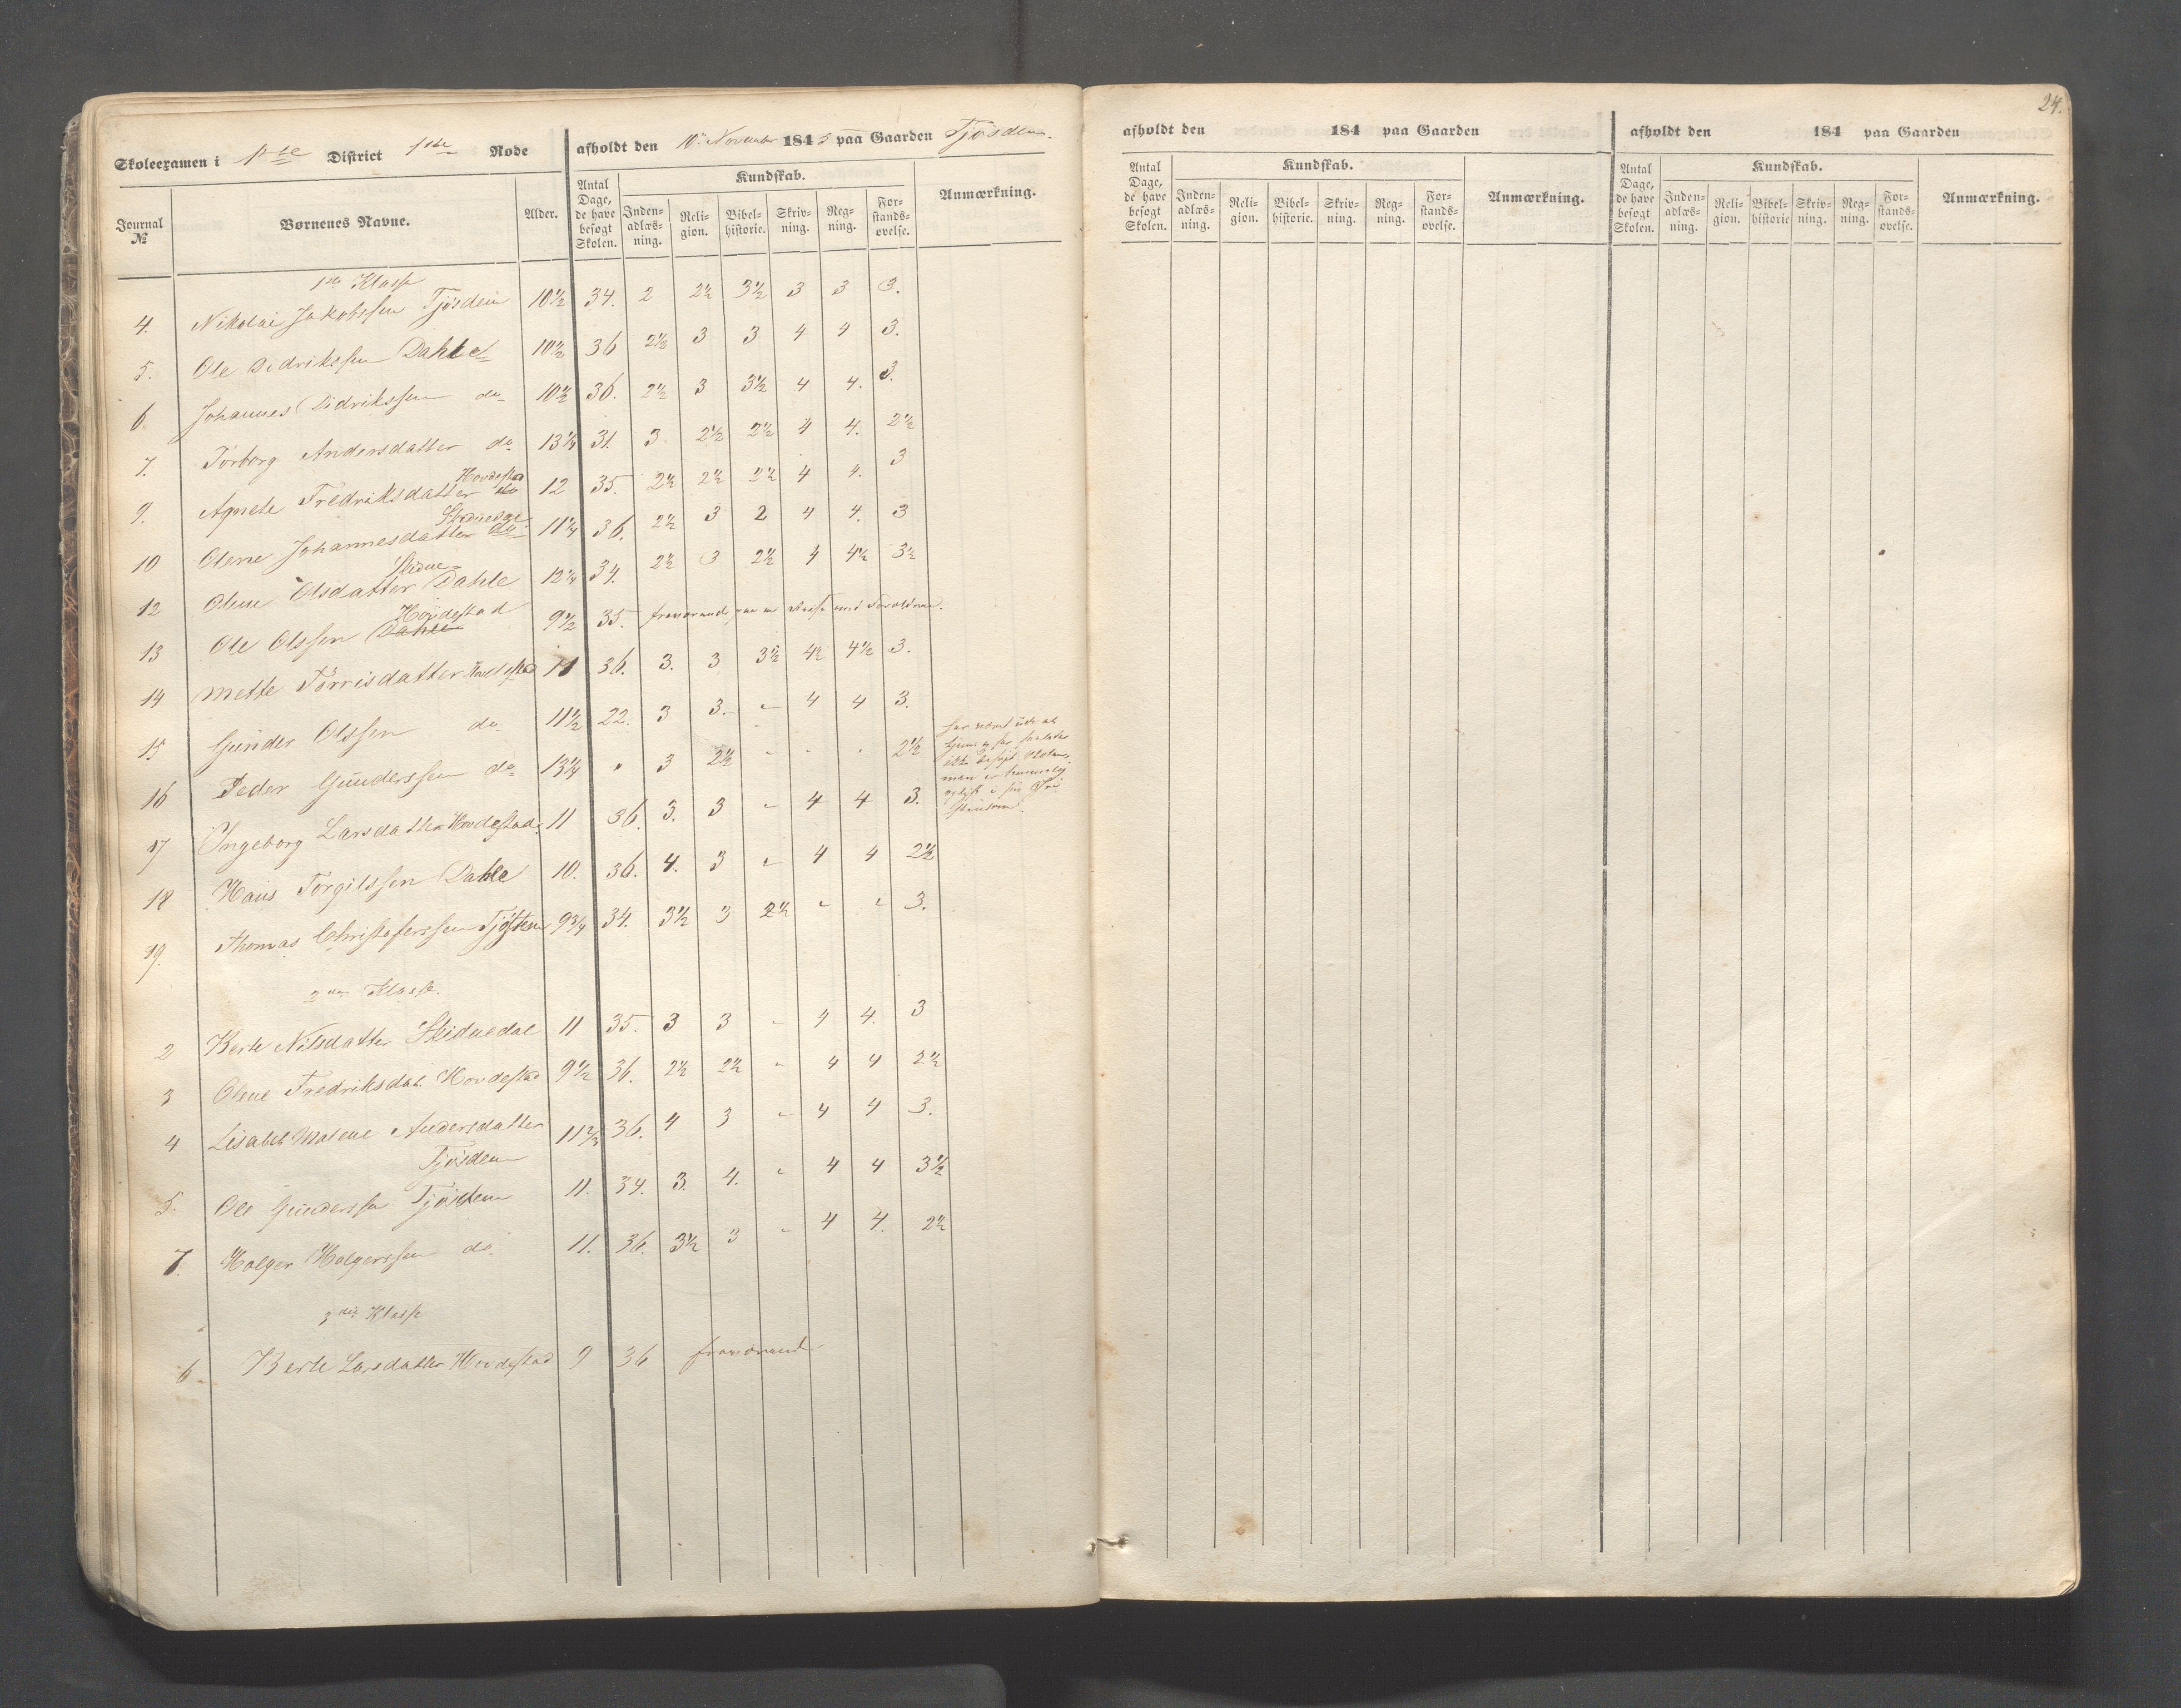 Skoleexamen i 1ste District 1ste Rode afholdt den 10de November 1845 paa Gaarden Tjösdem.
Journal № Børnenes Navne. Alder. Antal Dage, de have besøgt Skolen. Kundskab. Anmærkning.
Inden-adlæs-ning. Reli-gion. Bibel-historie. Skriv-ning. Reg-ning. For-stands-øvelse.
1ste Klasse
4. Nikolai Jakobssen Tjösdem 10½ 34. 2 2½ 3½ 3 3 3.
5. Ole Didrikssen Dahle 10½ 36 2½ 3 3 4 4 3.
6. Johannes Didrikssen do 10½ 36. 2½ 3 3½ 4 4. 3.
7. Torborg Andersdatter do 13¼ 31. 3 2½ 2½ 4 4. 2½
Hovdestad
9. Agnete Fredriksdatter do 12 35. 2½ 2½ 2½ 4 4. 3
10 Olene Johannesdatter do 11¼ 36. 2½ 3 2 4 4. 3
12 Olene Olsdatter Dahle 12¼ 34. 2½ 3 2½ 4 4½ 3½
Hovdestad
13 Ole Olssen Dahle 9½ 35. fraværende, paa en Reise med Forældrene.
14 Mette Törrisdatter Hovdestad 11 36. 3. 3 3½ 4½ 4½ 3.
15 Gunder Olssen do 11½ 22. 3 3. - 4 4 3.
16 Peder Gunderssen do 13¼ " 3 2½ - - - 2½
har været ude at tjene og har saaledes ikke besøgt Skolen, men er temmelig oplyst i sin
17 Ingeborg Larsdatter Hovdestad 11 36. 3. 3 - 4 4 3.
18 Hans Torgilssen Dahle 10. 36. 4. 3 - 4 4 2½
19. Thomas Christoferssen Tjösdem 9¾ 34. 3½ 3 2½ - - 3.
2den Klasse.
2 Berte Nilsdatter Skiduedal 11 35. 3 3 - 4 4. 3
3 Olene Fredriksdat. Hovdestad 9½ 36. 2½ 2½ - 4 4 2½
4 Lisabet Malene Andersdatter 11⅔ 36. 4 3 - 4 4 3.
Tjösdem
5. Ole Gunderssen Tjösdem 11. 34. 3. 4. - 4 4 3½
7. Holger Holgerssen do 11. 36. 3½ 3 - 4 4. 2½
3die Klasse
6. Berte Larsdatter Hovdestad 9 36 fraværende
24.
afholdt den 184 paa Gaarden
Antal Dage, de have besøgt Skolen. Kundskab. Anmærkning.
Inden-adlæs-ning. Reli-gion. Bibel-historie. Skriv-ning. Reg-ning. For-stands-øvelse.
afholdt den 184 paa Gaarden
Antal Dage, de have besøgt Skolen. Kundskab. Anmærkning.
Inden-adlæs-ning. Reli-gion. Bibel-historie Skriv-ning. Reg-ning. For-stands-øvelse.